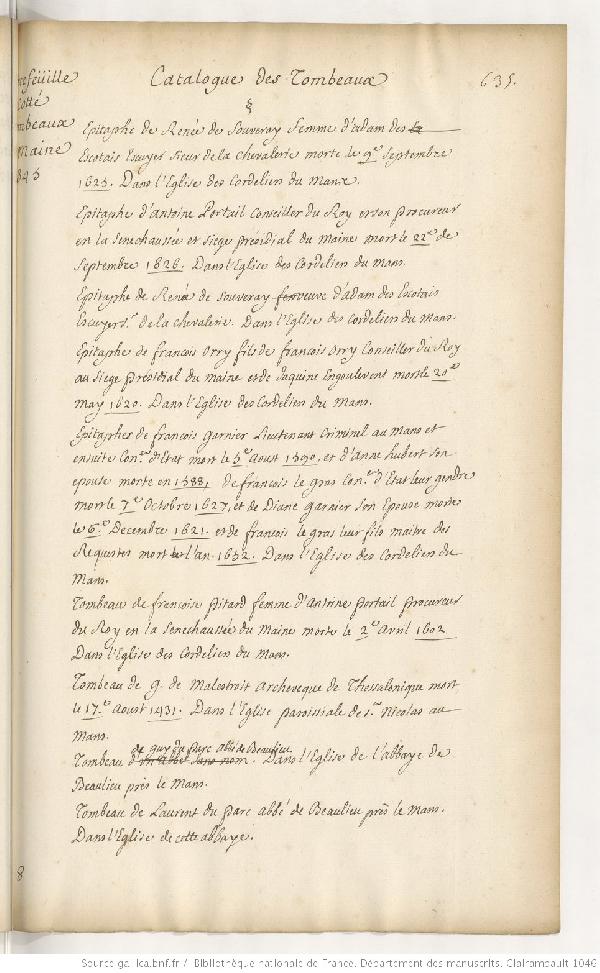 refeüille
Cotté
mbeaux
maine
Catalogue des Tombeaux
635.
§
Epitaphe de Renée de Souveray femme d'adam des
Escotais Escuyer sieur de la Chevalerie morte le 9.e septembre
1625. Dans l'Eglise des Cordeliers du Mans.
Epitaphe d'Antoine Portail Conseiller du Roy et son procureur
en la Senechaussée et siege présidial du Maine mort le 22.e de
septembre 1626. Dans l'Eglise des Cordelien du Mans.
Epitaphe de Renée de Souveray veuve d'adam des Escotais
Escuyer s.r de la Chevalerie. Dans l'Eglise des Cordelien du Mans.
Epitaphe de francois Orry fils de francois Orry Conseiller du Roy
au siege présidial du maine et de Jaquine Engoulevent mort le 20.e
may 1620. Dans l'Eglise des Cordelien du Mans.
Epitaphes de françois Garnier Lieutenant Criminel au Mans et
ensuite Con.er d'Estat mort le 5.e Aoust 1590, et d'Anne hubert son
epouse morte en 1588, de francois le gras Con.er d'Estat leur gendre
mort le 7.e Octobre 1627, et de Diane garnier son Epouse morte
le 6.e Decembre 1621. et de francois le gras leur fils maitre des
Requestes mort l'an 1652. Dans l'Eglise des Cordelien du
Mans.
Tombeau de francoise pitard femme d'Antoine portail procureur
du Roy en la senechaussée du Maine morte le 2.e Avril 1602
Dans l'Eglise des Cordelien du Mans.
Tombeau de g. de Malestroit Archeveque de Thessalonique mort
le 17.e Aoust 1431. Dans l'Eglise paroissiale de s.t Nicolas au
Mans.
de guy du Parc abbé de Beaulieu
Tombeau d'un abbé sans nom. Dans l'Eglise de l'abbaye de
Beaulieu près le Mans.
Tombeau de Laurent du parc abbé de Beaulieu près le Mans.
Dans l'Eglise de cette abbaye.
8
Source gallica.bnf.fr / Bibliothèque nationale de France. Département des manuscrits. Clairambault 1046